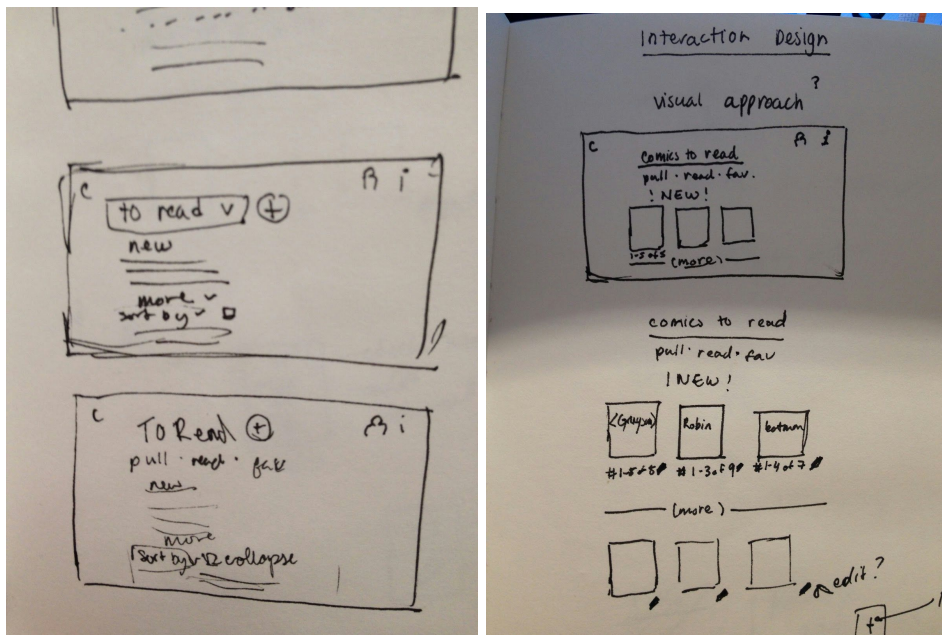 C i
to read v +
new
more v
sort by v
C i
To Read +
pull · read · fav
new
more
Sort by v collapse
Interaction Design
visual approach?
C i
comics to read
pull · read · fav.
! NEW !
1-5 of 8
(more)
comics to read
pull · read · fav
! NEW !
Robin batman
#1-5 of 8 #1-3 of 9 #1-4 of 7
(more)
edit?
+